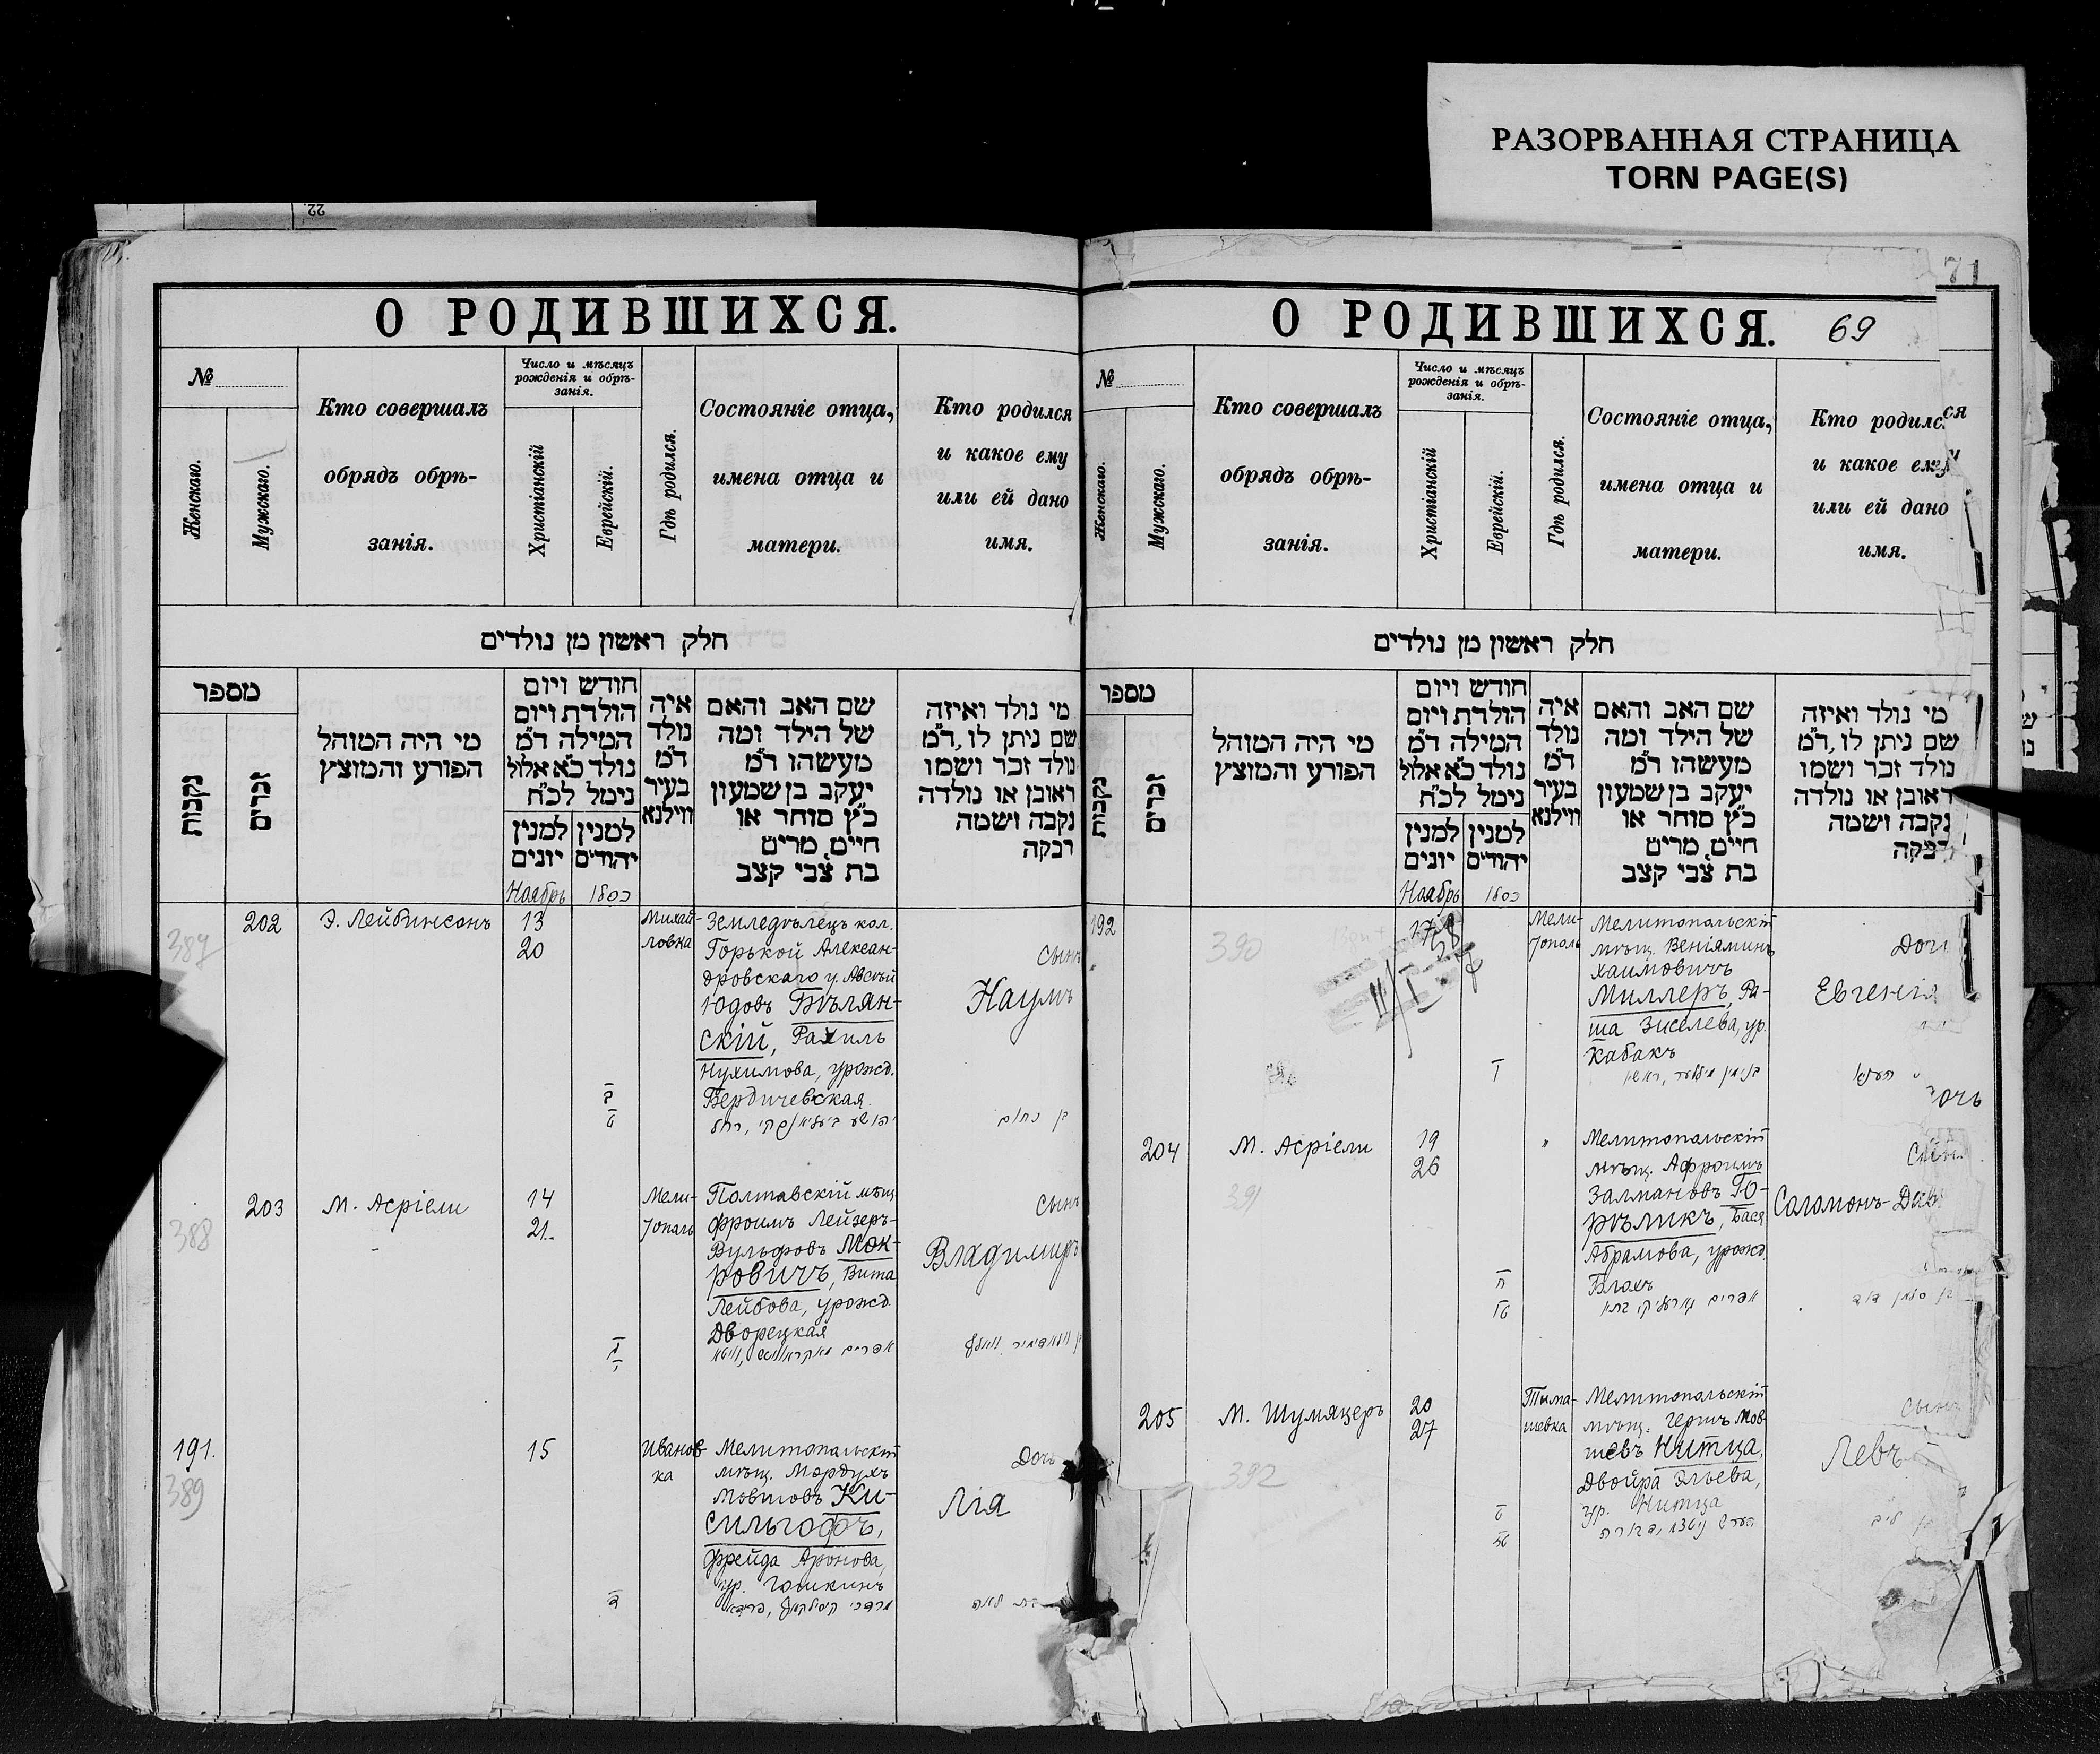 РАЗОРВАННАЯ СТРАНИЦА
TORN PAGE(S)
22.
71
О РОДИВШИХСЯ.
№
Женскаго.
Мужскаго.
Кто совершалъ
обрядъ обрѣ-
занія.
Число и мѣсяцъ
рожденія и обрѣ-
занія.
Христіанскій
Еврейскій.
Гдѣ родился.
Состояніе отца,
имена отца и
матери.
Кто родился
и какое ему
или ей дано
имя.
חלק ראשון מן נולדים
מספר
נקבות
זכרים
מי היה המוהל
הפורע והמוצץ
חודש ויום
הולדת ויום
המילה ד״מ
נולד כ״א אלול
נימל לכ״ח
למנין
יונים
למנין
יהודים
איה
נולד
ד״מ
בעיר
ווילנא
שם האב והאם
של הילד ומה
מעשהו ד״מ
יעקב בן שמעון
כ״ץ סוחר או
חייט, מרים
בת צבי קצב
מי נולד ואיזה
שם ניתן לו, ד״מ
נולד זכר ושמו
ראובן או נולדה
נקבה ושמה
רבקה
Ноябрь
כסלו
387
202
Э. Лейбинсонъ
13
20
Михай-
ловка
Земледѣлецъ кол.
Горькой Алексан-
дровскаго у. Авсѣй
Юдовъ Бѣлян-
скій, Рахиль
Нухимова, урожд.
Бердичевская.
Сынъ
Наумъ
בן נחום
388
203
М. Асріели
14
21.
Мели-
тополь
Полтавскій мѣщ.
Фроимъ Лейзеръ-
Вульфовъ Мок-
ровичъ, Вита
Лейбова, урожд.
Дворецкая
Сынъ
Владимиръ
191.
389
15
Иванов-
ка
Мелитопольскій
мѣщ. Мордухъ
Мовшовъ Ки-
сильгофъ,
Фрейда Аронова,
ур. Гошкинъ
Дочь
Лія
О РОДИВШИХСЯ.
69
№
Женскаго.
Мужскаго.
Кто совершалъ
обрядъ обрѣ-
занія.
Число и мѣсяцъ
рожденія и обрѣ-
занія.
Христіанскій
Еврейскій.
Гдѣ родился.
Состояніе отца,
имена отца и
матери.
Кто родился
и какое ему
или ей дано
имя.
חלק ראשון מן נולדים
מספר
נקבות
זכרים
מי היה המוהל
הפורע והמוצץ
חודש ויום
הולדת ויום
המילה ד״מ
נולד כ״א אלול
נימל לכ״ח
למנין
יונים
למנין
יהודים
איה
נולד
ד״מ
בעיר
ווילנא
שם האב והאם
של הילד ומה
מעשהו ד״מ
יעקב בן שמעון
כ״ץ סוחר או
חייט, מרים
בת צבי קצב
מי נולד ואיזה
שם ניתן לו, ד״מ
נולד זכר ושמו
ראובן או נולדה
נקבה ושמה
רבקה
Ноябрь
כסלו
192
390
17
Мели-
тополь
Мелитопольскій
мѣщ. Веніяминъ
Хаимовичъ
Миллеръ, Ра-
ша Зиселева, ур.
Кабакъ
Дочь
Евгенія
204
391
М. Асріели
19
26
"
Мелитопольскій
мѣщ. Афроимъ
Залмановъ Го-
рѣликъ, Бася
Абрамова, урожд.
Блохъ
Сынъ
Соломонъ-Дав
בן סלמן דוד
205
392
М. Шумяцеръ
20
27
Тима-
шевка
Мелитопольскій
мѣщ. Гершъ Мов-
шевъ Нитца,
Двойра Эльева,
ур. Нитца
Сынъ
Левъ
בן ליב